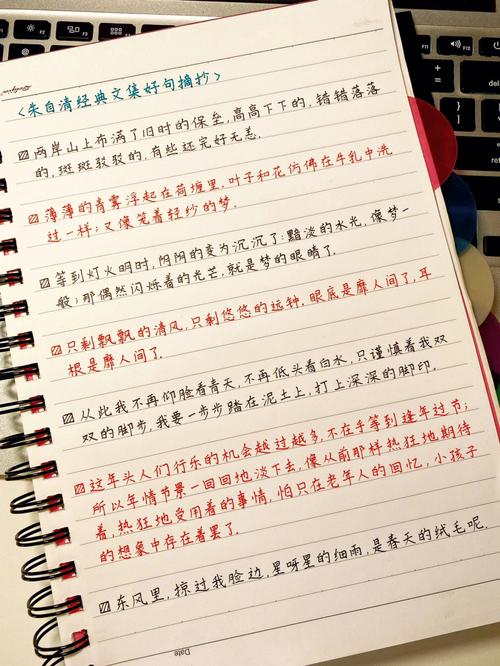 <朱自清经典文集好句摘抄>
两岸山上布满了旧时的保垒,高高下下的,错错落落
的,斑斑驳驳的,有些还完好无恙.
薄薄的青雾浮起在荷塘里.叶子和花仿佛在牛乳中洗
过一样;又像笼着轻纱的梦.
等到灯火明时,阴阴的变为沉沉了:黯淡的水光,像梦一
般;那偶然闪烁着的光芒,就是梦的眼睛了.
只剩飘飘的清风,只剩悠悠的远钟.眼底是靡人间了,耳
根是靡人间了.
从此我不再仰脸看青天,不再低头看白水,只谨慎着我双
双的脚步,我要一步步踏在泥土上,打上深深的脚印.
这年头人们行乐的机会越过越多,不在乎等到逢年过节;
所以年情节景一回回地淡下去,像从前那样热狂地期待
着,热狂地受用着的事情,怕只在老年人的回忆,小孩子
的想象中存在着罢了.
东风里,掠过我脸边,星呀星的细雨,是春天的绒毛呢.
Date